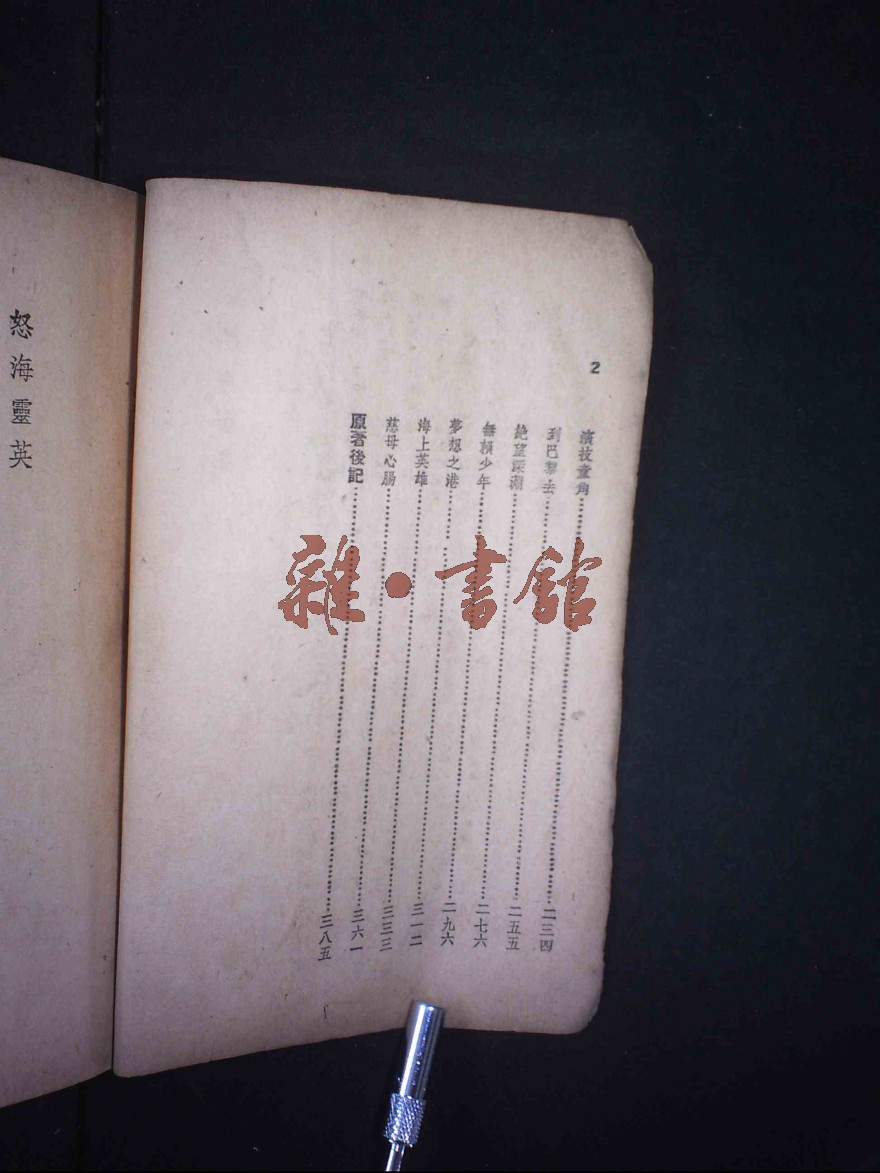 2
演技童角……二三四
到巴黎去……二五五
絶望深淵……二七六
無賴少年……二九六
夢想之港……三一二
海上英雄……三三三
慈母心腸……三六一
原著後記……三八五
怒海靈英
雜·書館